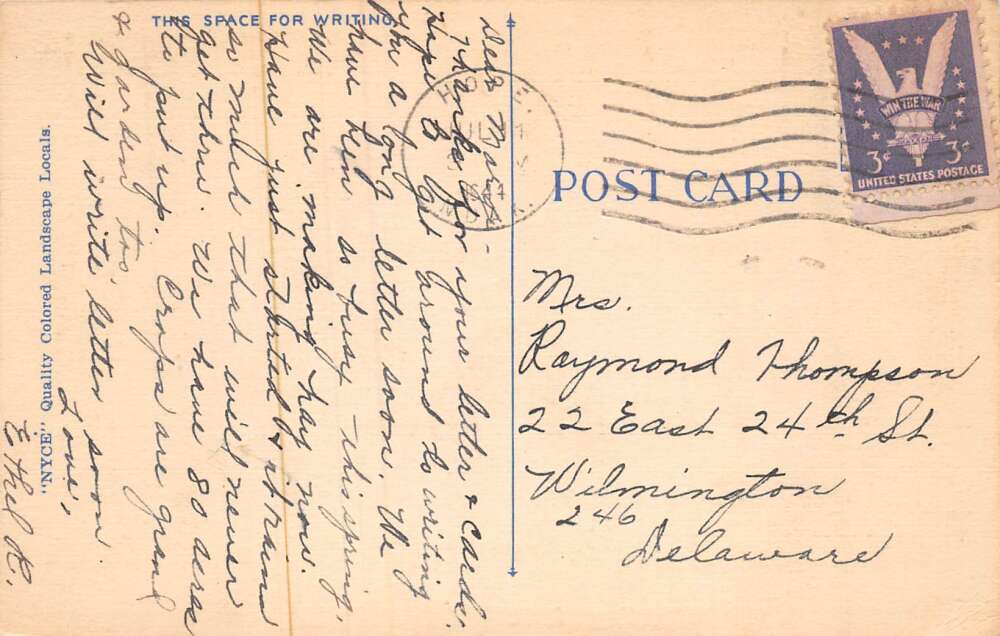 THIS SPACE FOR WRITING
Dear Mary -
Thanks for your letter & cards.
Hope to get around to writing
you a long letter soon. We
have been so busy this spring.
We are making hay now.
Have just started & it rains
so much that will never
get thru. We have 80 acres
to put up. Crops are grand
& garden too.
Will write letter soon
Love,
Ethel R.
"NYCE" Quality Colored Landscape Locals.
1944
N.Y.
POST CARD
WIN THE WAR
3¢ 3¢
UNITED STATES POSTAGE
Mrs.
Raymond Thompson
22 East 24th St.
Wilmington
246
Delaware